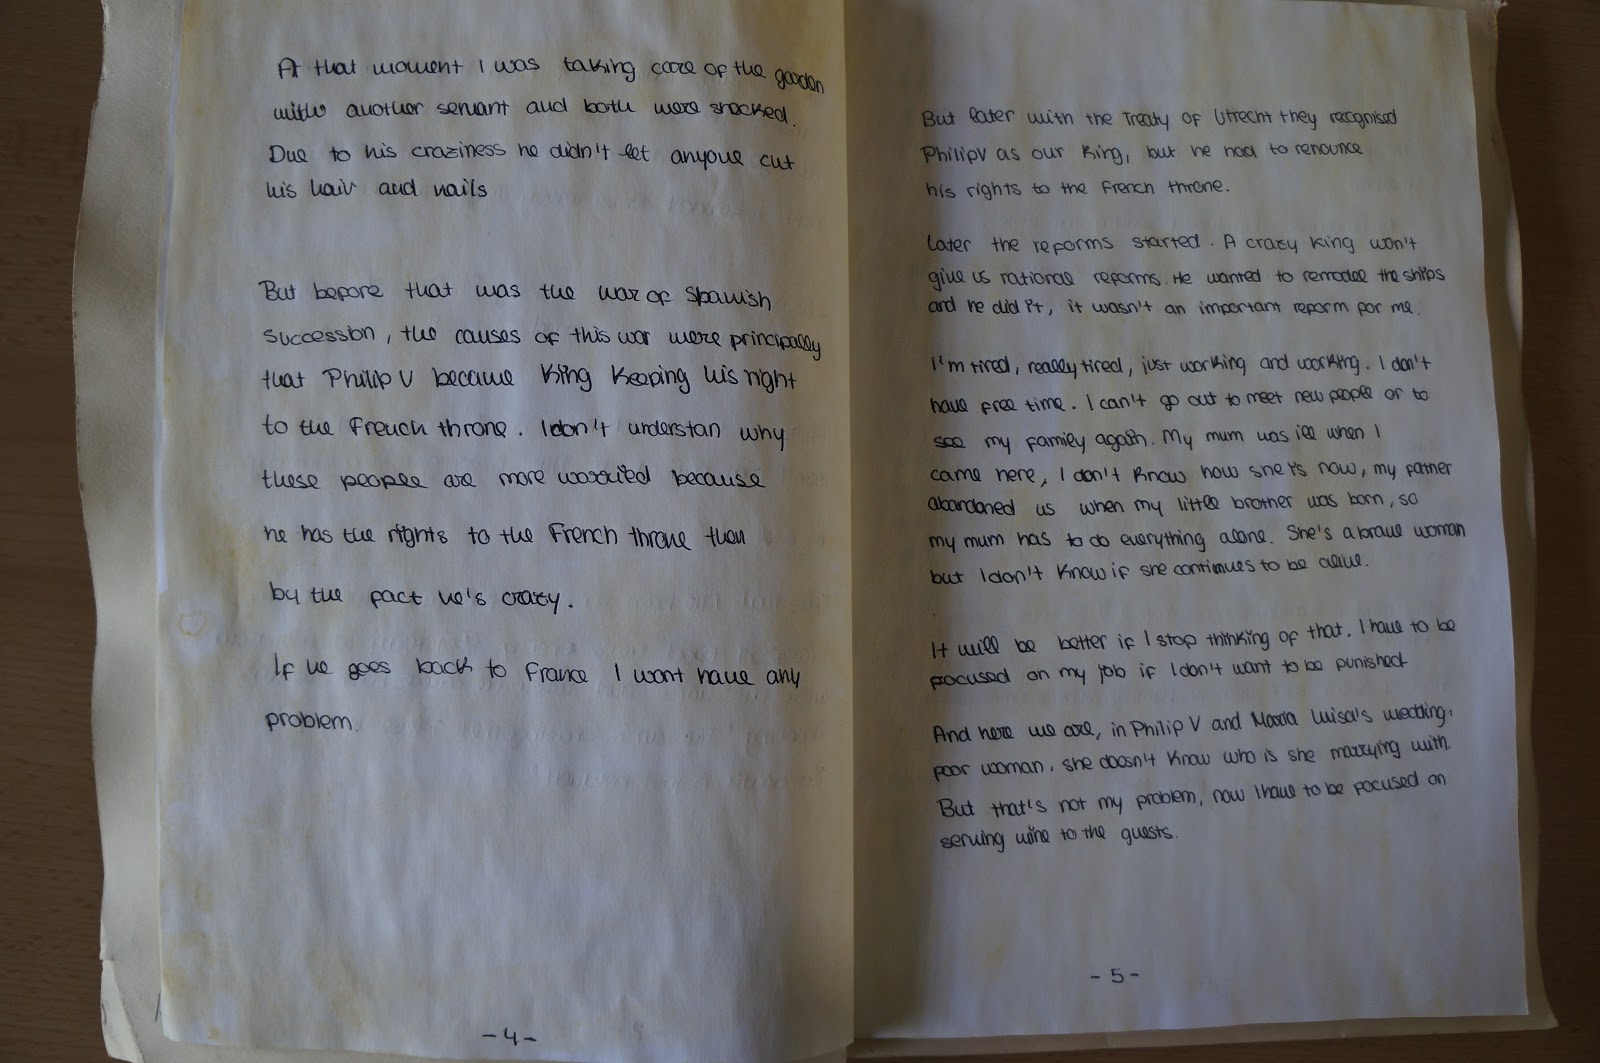 At that moment I was taking care of the garden
with another servant and both were shocked.
Due to his craziness he didn't let anyone cut
his hair and nails
But before that was the war of Spanish
Succession, the causes of this war were principally
that Philip V became King Keeping his right
to the French throne. I don't understan why
these people are more worried because
he has the rights to the French throne than
by the fact he's crazy.
If he goes back to France I wont have any
problem.
-4-
But later with the Treaty of Utrecht they recognised
Philip V as our King, but he had to renounce
his rights to the French throne.
Later the reforms started. A crazy King won't
give us rational reforms. He wanted to remodel the ships
and he did it, it wasn't an important reform for me.
I'm tired, really tired, just working and working. I don't
have free time. I can't go out to meet new people or to
see my family again. My mum was ill when I
came here, I don't Know how she is now, my father
abandoned us when my little brother was born, so
my mum has to do everything alone. She's a brave woman
but I don't Know if she continues to be alive.
It will be better if I stop thinking of that. I have to be
focused on my job if I don't want to be punished
And here we are, in Philip V and Maria Luisa's wedding,
poor woman, she doesn't Know who is she marrying with.
But that's not my problem, now I have to be focused on
serving wine to the guests.
-5-